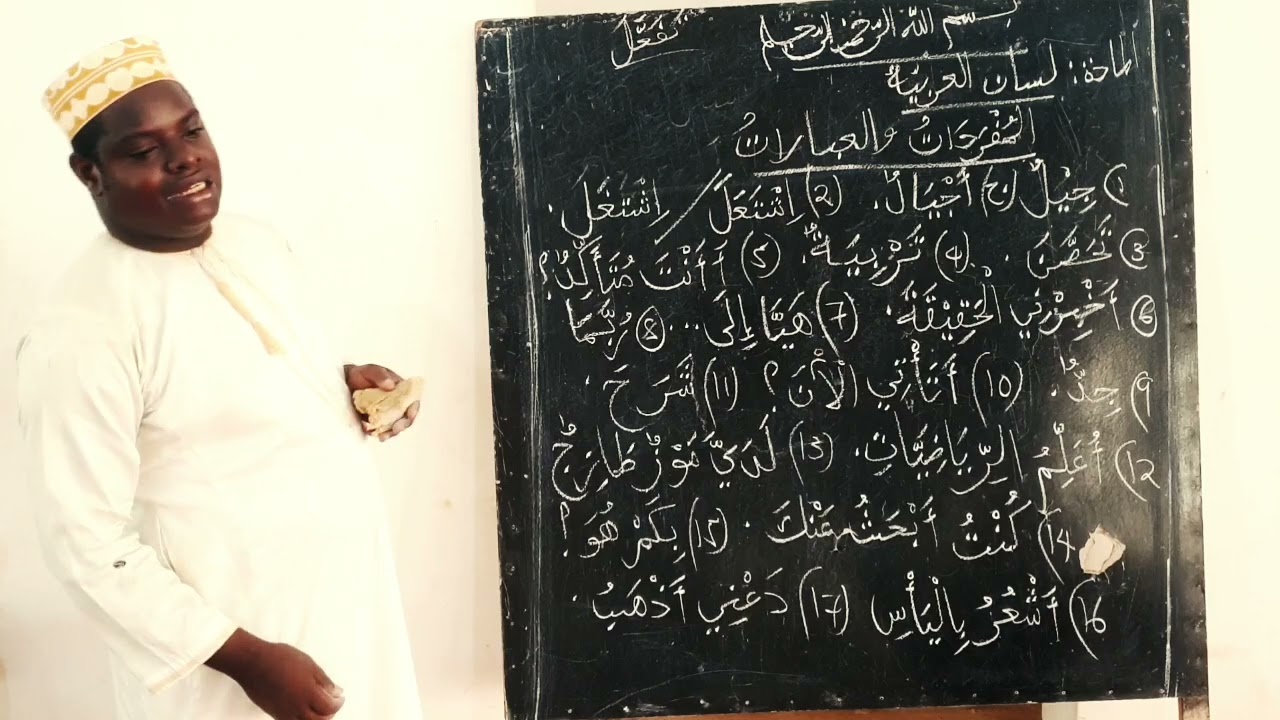 بسم الله الرحمن الرحيم تَفَعَّلَ
المادة: لسان العربية
المُفْرَدَاتُ والعبارات
١) جِيْلٌ (ج) أَجْيَالٌ. (2) اِشْتَعَلَ / اِشْتَغَلَ.
3) (4) تَرْبِيَةٌ. (5) أَ أَنْتَ مُتَأَكِّدٌ؟
6) أَخْبِرْنِي الْحَقِيْقَةَ. (7) هَيَّا إِلَى... (8) رُبَّمَا
9) جِدٌّ. (10) أَتَأْتِي الْأنَ؟ (11) شَرَحَ.
12) أُعَلِّمُ الرِّيَاضِيَّاتِ. (13) لَدَيَّ مَوْزٌ طَازِجٌ
14) كُنْتُ أَبْحَثُ عَنْكَ. (15) بِكَمْ هُوَ؟
16) أَشْعُرُ بِالْيَأْسِ (17) دَعْنِي أَذْهَبُ.